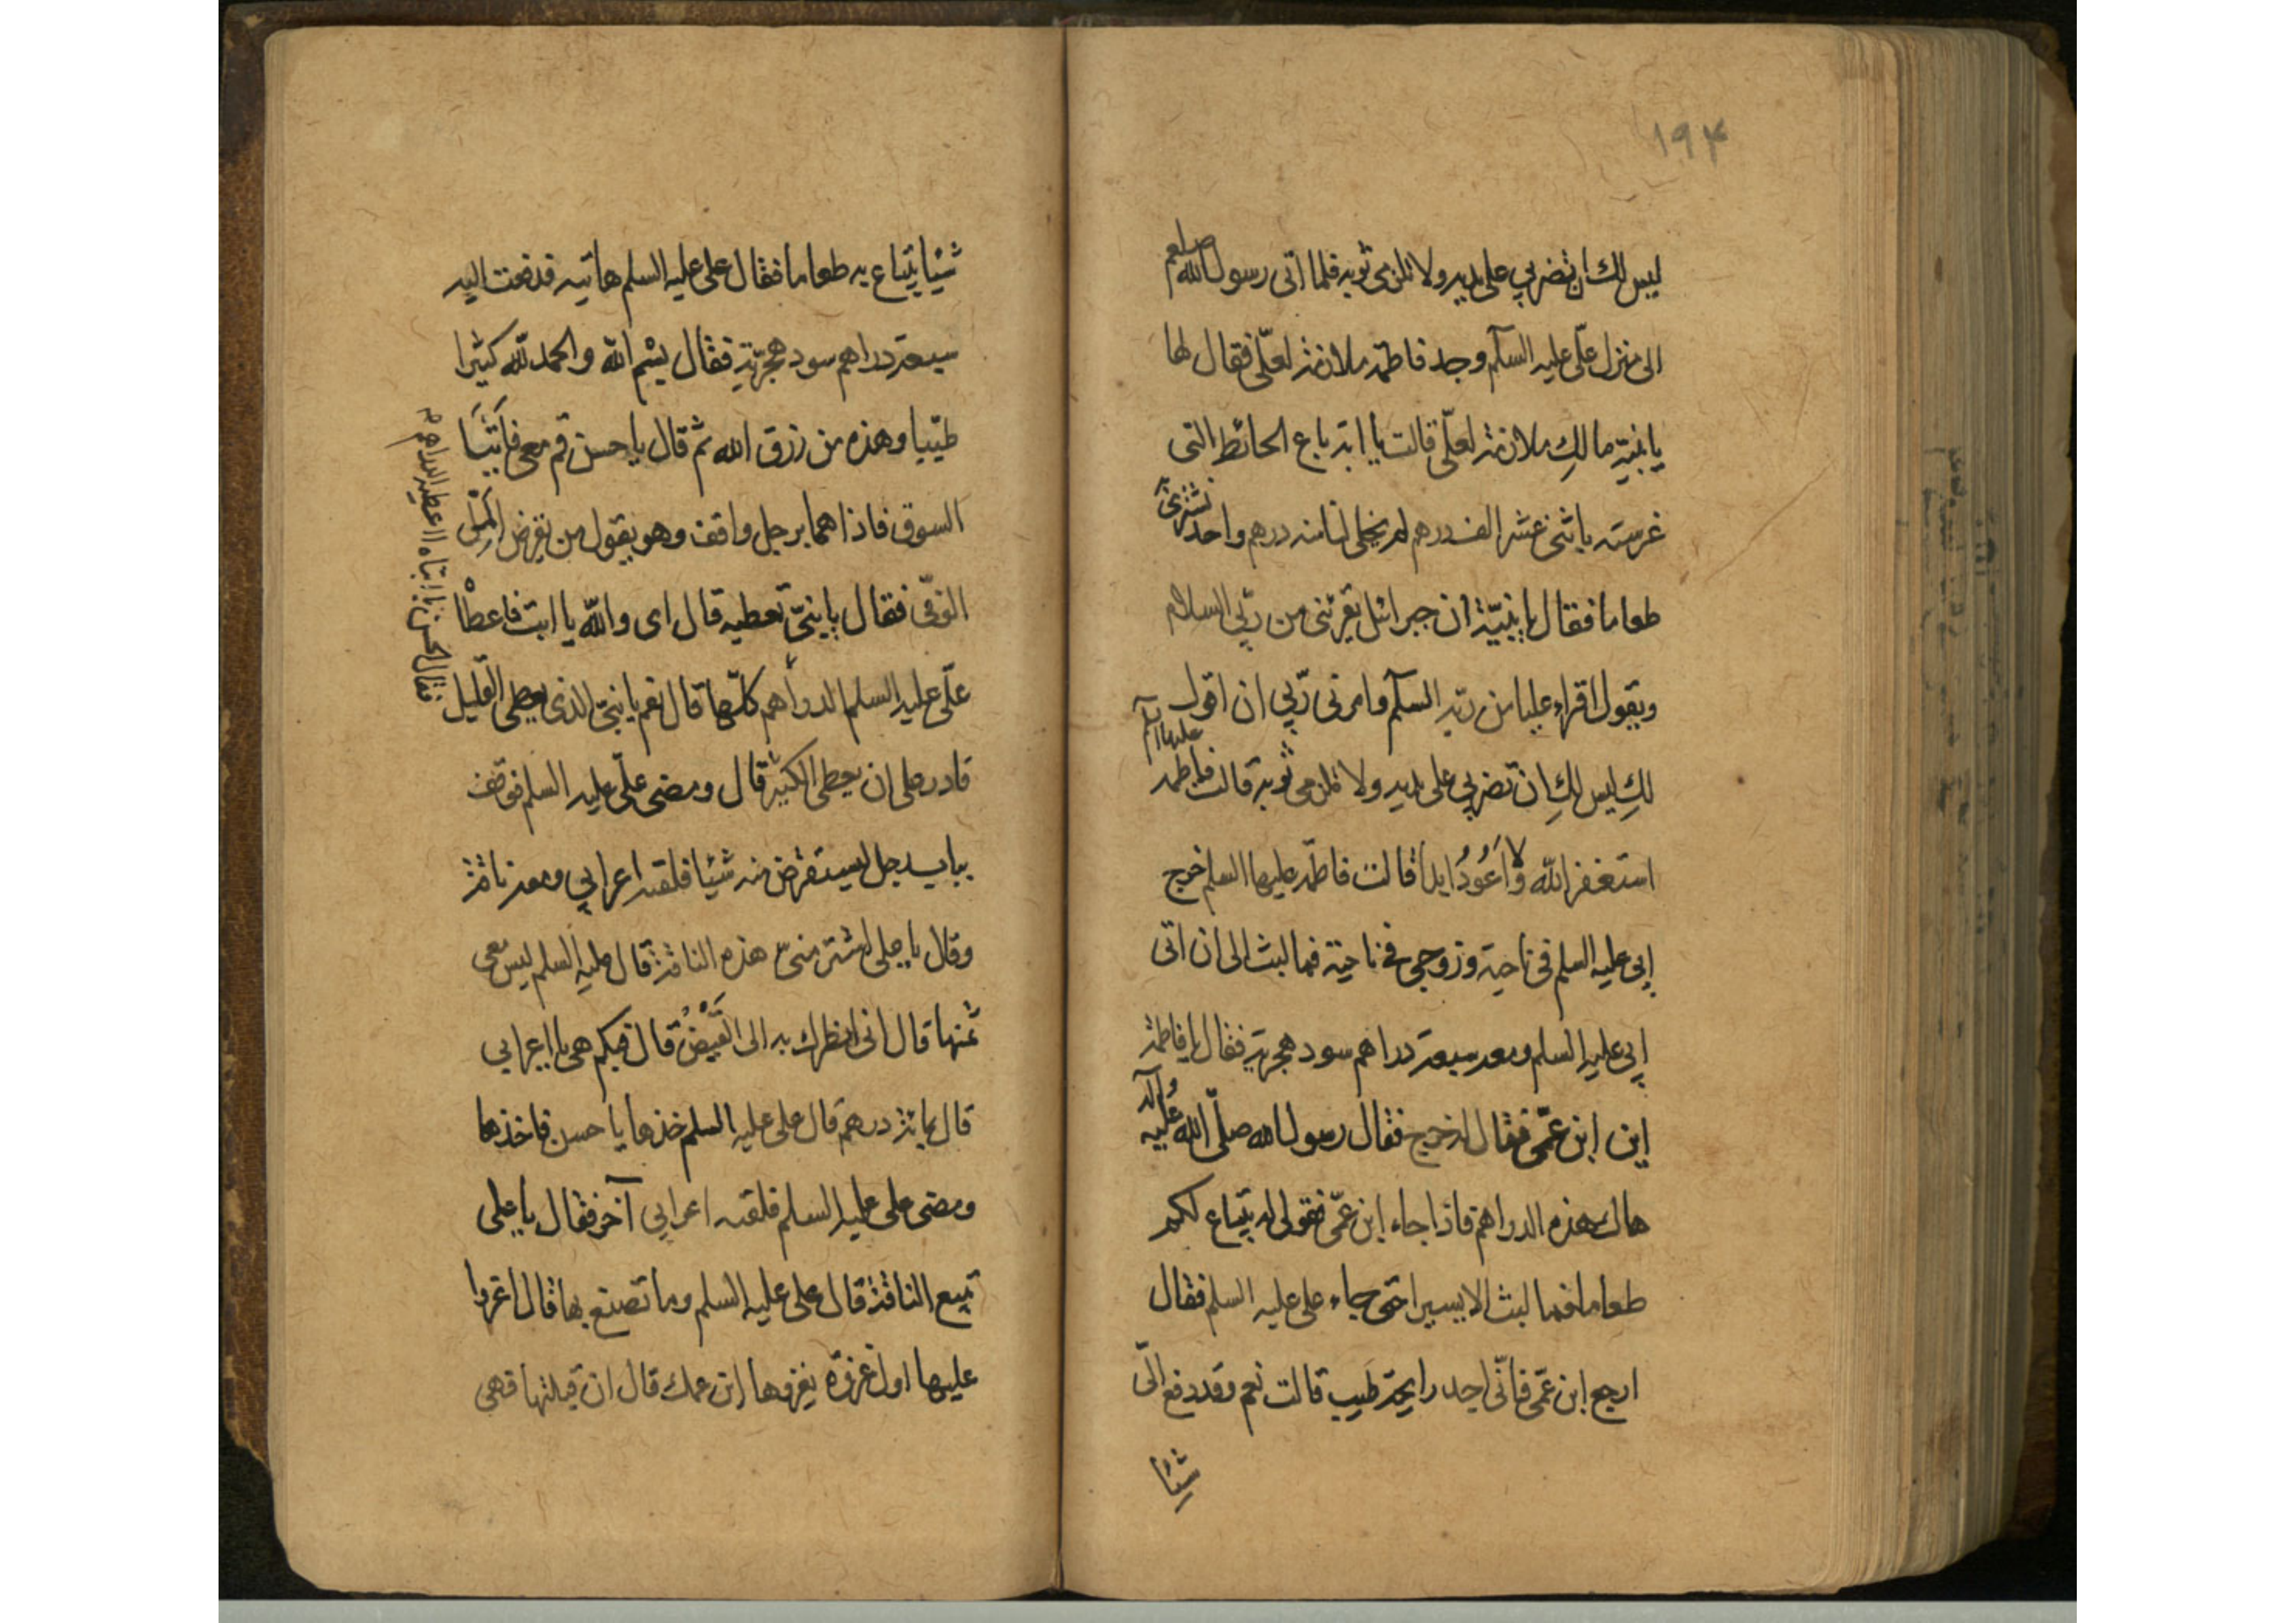 ۱۹۴
ليس لك ان تضربي على يديه ولا تلزمي ثوبه فلما اتى رسول الله صلعم
الى منزل علّي عليه السلّم وجد فاطمة ملازمة لعلّي فقال لها
يا بنية مالكِ ملازمة لعلّي قالت يا ابة باع الحائط التي
غرسته باثنى عشر الف درهم لم يخلى لنا منه درهم واحد نشتري به
طعاما فقال يا بنيّة ان جبرائيل يقرئنى من ربّي السلام
ويقول اقراء عليا من ربّه السلّم وامرنى ربّي ان اقول
لكِ ليس لكِ ان تضربي على يديه ولا تلزمي ثوبه قالت فاطمة عليها السلم
استغفر الله ولا اَعُودُ ابداً قالت فاطمة عليها السلم خرج
ابي عليه السلم في ناحية وزوجي في ناحية فما لبث الى ان اتى
ابي عليه السلم ومعه سبعة دراهم سود هجرية فقال يا فاطمة
اين ابن عمّي فقال له خرج فقال رسول الله صلّى الله عُليه وآله
هاك هذه الدراهم فاذا جاء ابن عمّي فقولي له يبتاع لكم
طعاما فما لبث الا يسيرا حتى جاء على عليه السلم فقال
ارجع ابن عمّي فانّي اجد رايحة طيب قالت نعم وقد دفع الّي
شيئا
شيئا يبتاع به طعاما فقال على عليه السلم هاتيه فدفعت اليه
سبعة دراهم سود هجريّة فقال بسْم الله والحمد للّه كثيرا
طيّبا وهذه من رزق الله ثم قال يا حسن قم معي فاَتَيَا
السوق فاذا هما برجل واقف وهو يقول من يقرض المَلّى
الوفّي فقال يا بنيّ تعطيه قال اى واللّه يا ابت فاعطْا
علّي عليه السلم الدراهم كلّها قال نعم يا بنيّ الذى يعطى القليل
فقال الحسن يا ابتاه ااعطيه الدراهم
قادر على ان يعطى الكثير قال ومضى علّي عليه السلم فوقف
بباب رجل ليستقرض منه شيئا فلقيه اعرابي ومعه ناقة
وقال يا على اشتر منيّ هذه الناقة قال عليه السلم ليس معى
ثمنها قال انى انظرك به الى القَيْضُ قال فبكم هي يا اعرابي
قال بمائة درهم قال على عليه السلم خذها يا حسن فاخذها
ومضى على عليه السلم فلقيه اعرابي آخر فقال يا على
تبيع الناقة قال على عليه السلم وما تصنع بها قال اغزوا
عليها اول غزوة يغزوها ابن عمك قال ان قبلتها فهى